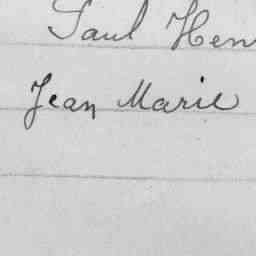 Paul Hen
Jean Marie